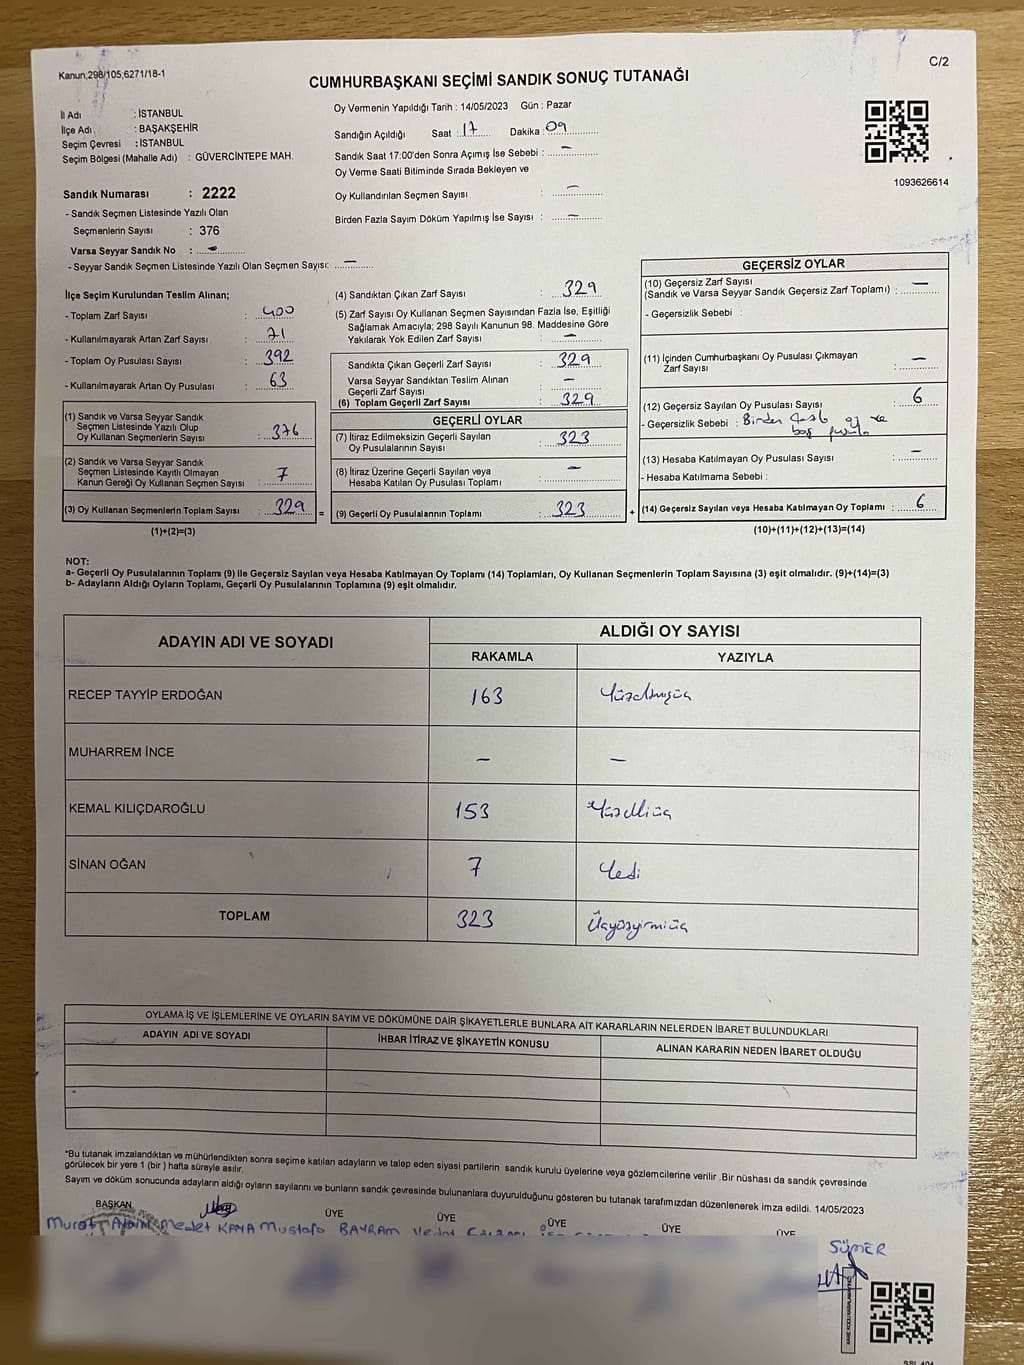 Kanun;298/105;6271/18-1
C/2
CUMHURBAŞKANI SEÇİMİ SANDIK SONUÇ TUTANAĞI
İl Adı : İSTANBUL
İlçe Adı : BAŞAKŞEHİR
Seçim Çevresi : İSTANBUL
Seçim Bölgesi (Mahalle Adı) : GÜVERCİNTEPE MAH.
Sandık Numarası : 2222
- Sandık Seçmen Listesinde Yazılı Olan
Seçmenlerin Sayısı : 376
Varsa Seyyar Sandık No : -
- Seyyar Sandık Seçmen Listesinde Yazılı Olan Seçmen Sayısı: -
Oy Vermenin Yapıldığı Tarih : 14/05/2023 Gün : Pazar
Sandığın Açıldığı Saat : 17 Dakika : 09
Sandık Saat 17:00'den Sonra Açımış İse Sebebi : -
Oy Verme Saati Bitiminde Sırada Bekleyen ve
Oy Kullandırılan Seçmen Sayısı : -
Birden Fazla Sayım Döküm Yapılmış İse Sayısı : -
1093626614
İlçe Seçim Kurulundan Teslim Alınan;
- Toplam Zarf Sayısı : 400
- Kullanılmayarak Artan Zarf Sayısı : 71
- Toplam Oy Pusulası Sayısı : 392
- Kullanılmayarak Artan Oy Pusulası : 63
(1) Sandık ve Varsa Seyyar Sandık
Seçmen Listesinde Yazılı Olup
Oy Kullanan Seçmenlerin Sayısı : 376
(2) Sandık ve Varsa Seyyar Sandık
Seçmen Listesinde Kayıtlı Olmayan
Kanun Gereği Oy Kullanan Seçmen Sayısı : 7
(3) Oy Kullanan Seçmenlerin Toplam Sayısı : 329 =
(1)+(2)=(3)
(4) Sandıktan Çıkan Zarf Sayısı : 329
(5) Zarf Sayısı Oy Kullanan Seçmen Sayısından Fazla İse, Eşitliği
Sağlamak Amacıyla; 298 Sayılı Kanunun 98. Maddesine Göre
Yakılarak Yok Edilen Zarf Sayısı : -
Sandıkta Çıkan Geçerli Zarf Sayısı : 329
Varsa Seyyar Sandıktan Teslim Alınan
Geçerli Zarf Sayısı : -
(6) Toplam Geçerli Zarf Sayısı : 329
GEÇERLİ OYLAR
(7) İtiraz Edilmeksizin Geçerli Sayılan
Oy Pusulalarının Sayısı : 323
(8) İtiraz Üzerine Geçerli Sayılan veya
Hesaba Katılan Oy Pusulası Toplamı : -
(9) Geçerli Oy Pusulalarının Toplamı : 323 +
GEÇERSİZ OYLAR
(10) Geçersiz Zarf Sayısı
(Sandık ve Varsa Seyyar Sandık Geçersiz Zarf Toplamı) : -
- Geçersizlik Sebebi :
(11) İçinden Cumhurbaşkanı Oy Pusulası Çıkmayan
Zarf Sayısı : -
(12) Geçersiz Sayılan Oy Pusulası Sayısı : 6
- Geçersizlik Sebebi : Birden fazla oy ve
boş pusula
(13) Hesaba Katılmayan Oy Pusulası Sayısı : -
- Hesaba Katılmama Sebebi :
(14) Geçersiz Sayılan veya Hesaba Katılmayan Oy Toplamı : 6
(10)+(11)+(12)+(13)=(14)
NOT:
a- Geçerli Oy Pusulalarının Toplamı (9) ile Geçersiz Sayılan veya Hesaba Katılmayan Oy Toplamı (14) Toplamları, Oy Kullanan Seçmenlerin Toplam Sayısına (3) eşit olmalıdır. (9)+(14)=(3)
b- Adayların Aldığı Oyların Toplamı, Geçerli Oy Pusulalarının Toplamına (9) eşit olmalıdır.
ADAYIN ADI VE SOYADI
ALDIĞI OY SAYISI
RAKAMLA YAZIYLA
RECEP TAYYİP ERDOĞAN 163 Yüzaltmışüç
MUHARREM İNCE - -
KEMAL KILIÇDAROĞLU 153 Yüzelliüç
SİNAN OĞAN 7 Yedi
TOPLAM 323 Üçyüzyirmiüç
OYLAMA İŞ VE İŞLEMLERİNE VE OYLARIN SAYIM VE DÖKÜMÜNE DAİR ŞİKAYETLERLE BUNLARA AİT KARARLARIN NELERDEN İBARET BULUNDUKLARI
ADAYIN ADI VE SOYADI İHBAR İTİRAZ VE ŞİKAYETİN KONUSU ALINAN KARARIN NEDEN İBARET OLDUĞU
*Bu tutanak imzalandıktan ve mühürlendikten sonra seçime katılan adayların ve talep eden siyasi partilerin sandık kurulu üyelerine veya gözlemcilerine verilir .Bir nüshası da sandık çevresinde
görülecek bir yere 1 (bir ) hafta süreyle asılır.
Sayım ve döküm sonucunda adayların aldığı oyların sayılarını ve bunların sandık çevresinde bulunanlara duyurulduğunu gösteren bu tutanak tarafımızdan düzenlenerek imza edildi. 14/05/2023
BAŞKAN ÜYE ÜYE ÜYE ÜYE ÜYE
Murat Aydın Medet KAYA Mustafa BAYRAM Vedat
SÜMER